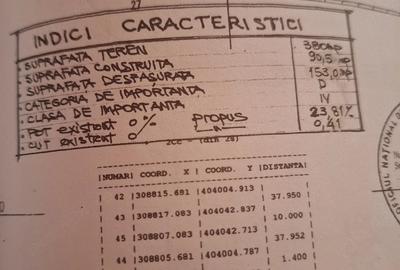 27
INDICI CARACTERISTICI
• SUPRAFATA TEREN 380mp
• SUPRAFATA CONSTRUITA 90,5 mp
• SUPRAFATA DESFASURATA 153,0mp
• CATEGORIA DE IMPORTANTA D
• CLASA DE IMPORTANTA IV
• POT existent 0% propus 23,81%
• CUT existent 0 0,41
|NUMAR| COORD. X | COORD. Y |DISTANTA|
42 |308815.681 |404004.913
37.950
43 |308817.083 |404042.837
10.000
45 |308807.083 |404042.713
37.952
44 |308805.681 |404004.787
1.400
OFICIUL NATIONAL